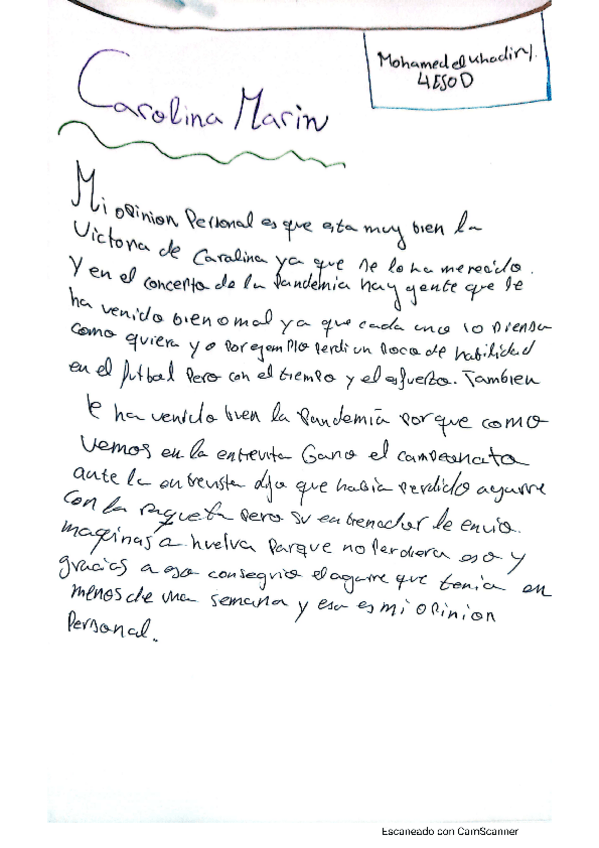 Mohamed el Khadiry.
4ESO D
Carolina Marin
Mi opinion Personal es que esta muy bien la
Victoria de Carolina ya que se lo ha merecido.
Y en el concepto de la Pandemia hay gente que le
ha venido bien o mal ya que cada uno lo piensa
como quiera yo por ejemplo perdi un poco de habilidad
en el futbol Pero con el tiempo y el esfuerzo. Tambien
le ha venido bien la Pandemia Porque como
Vemos en la entrevita Gano el campeonato
ante la entrevista dijo que habia perdido agarre
con la raqueta pero su entrenador le envio.
maqinas a huelva Parque no Perdiera eso y
gracias a eso conseguio el agarre que tenia en
menos de una semana y esa es mi opinion
Personal.
Escaneado con CamScanner